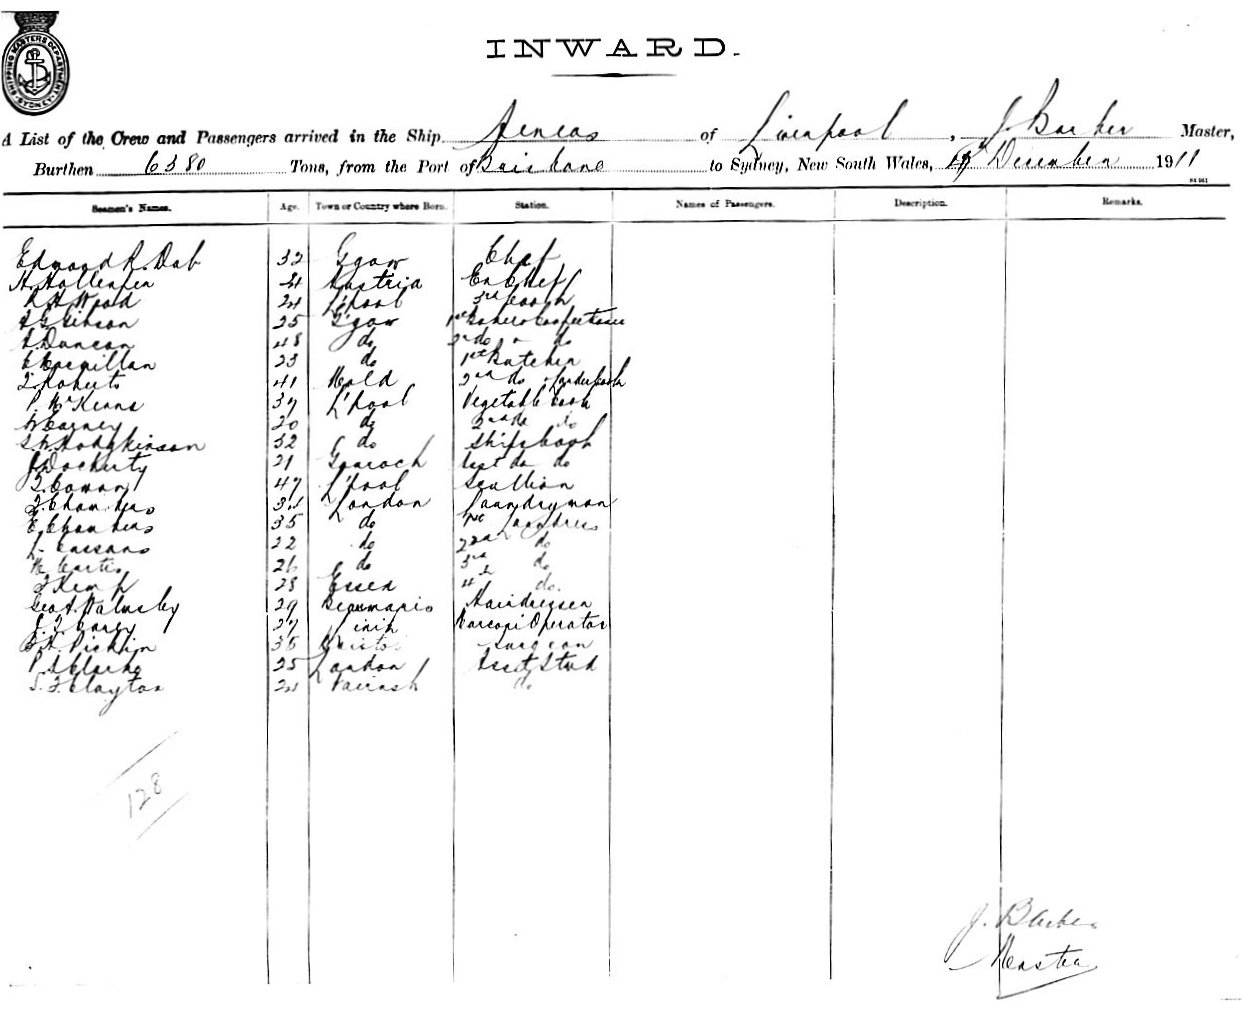 SHIPPING MASTERS DEPARTMENT SYDNEY
INWARD.
A List of the Crew and Passengers arrived in the Ship Aeneas of Liverpool, J. Barber Master,
Burthen 6380 Tons, from the Port of Brisbane to Sydney, New South Wales, December 1911
Seamen's Names. Age. Town or Country where Born. Station. Names of Passengers. Description. Remarks.
Edward R. Dab 32 Ggow Chef
H. Hollenzen Austria En Chef
R H Wood 24 L'pool 3rd Cook
A G Gibson 25 G'gow 1st Baker & Confectioner
A Duncan 48 do 2nd do do
C Macmillan 23 do 1st Butcher
T. Roberts 41 Mold 2nd do & Larder Cook
P. McKenna 37 L'pool Vegetable Cook
W Carney 20 do 2nd do do
S W Hodgkinson 32 do Ships Cook
J Docherty 21 Gourock Asst do do
T. Cowan 47 L'pool Scullion
F Chambers 34 London Laundryman
E Chambers 35 do Laundress
L. Cassano 22 do 2nd do
M Curtis 26 do 3rd do
F Kemp 28 Essex 4th do.
Geo A. Walmsley 29 Beaumaris Hairdresser
J. T. Carey 27 Marconi Operator
H. Picklin 35 Bristol Surgeon
P S Clarke 25 London Asst Stwd
S. F. Clayton 24 do
128
J. Barber
Master